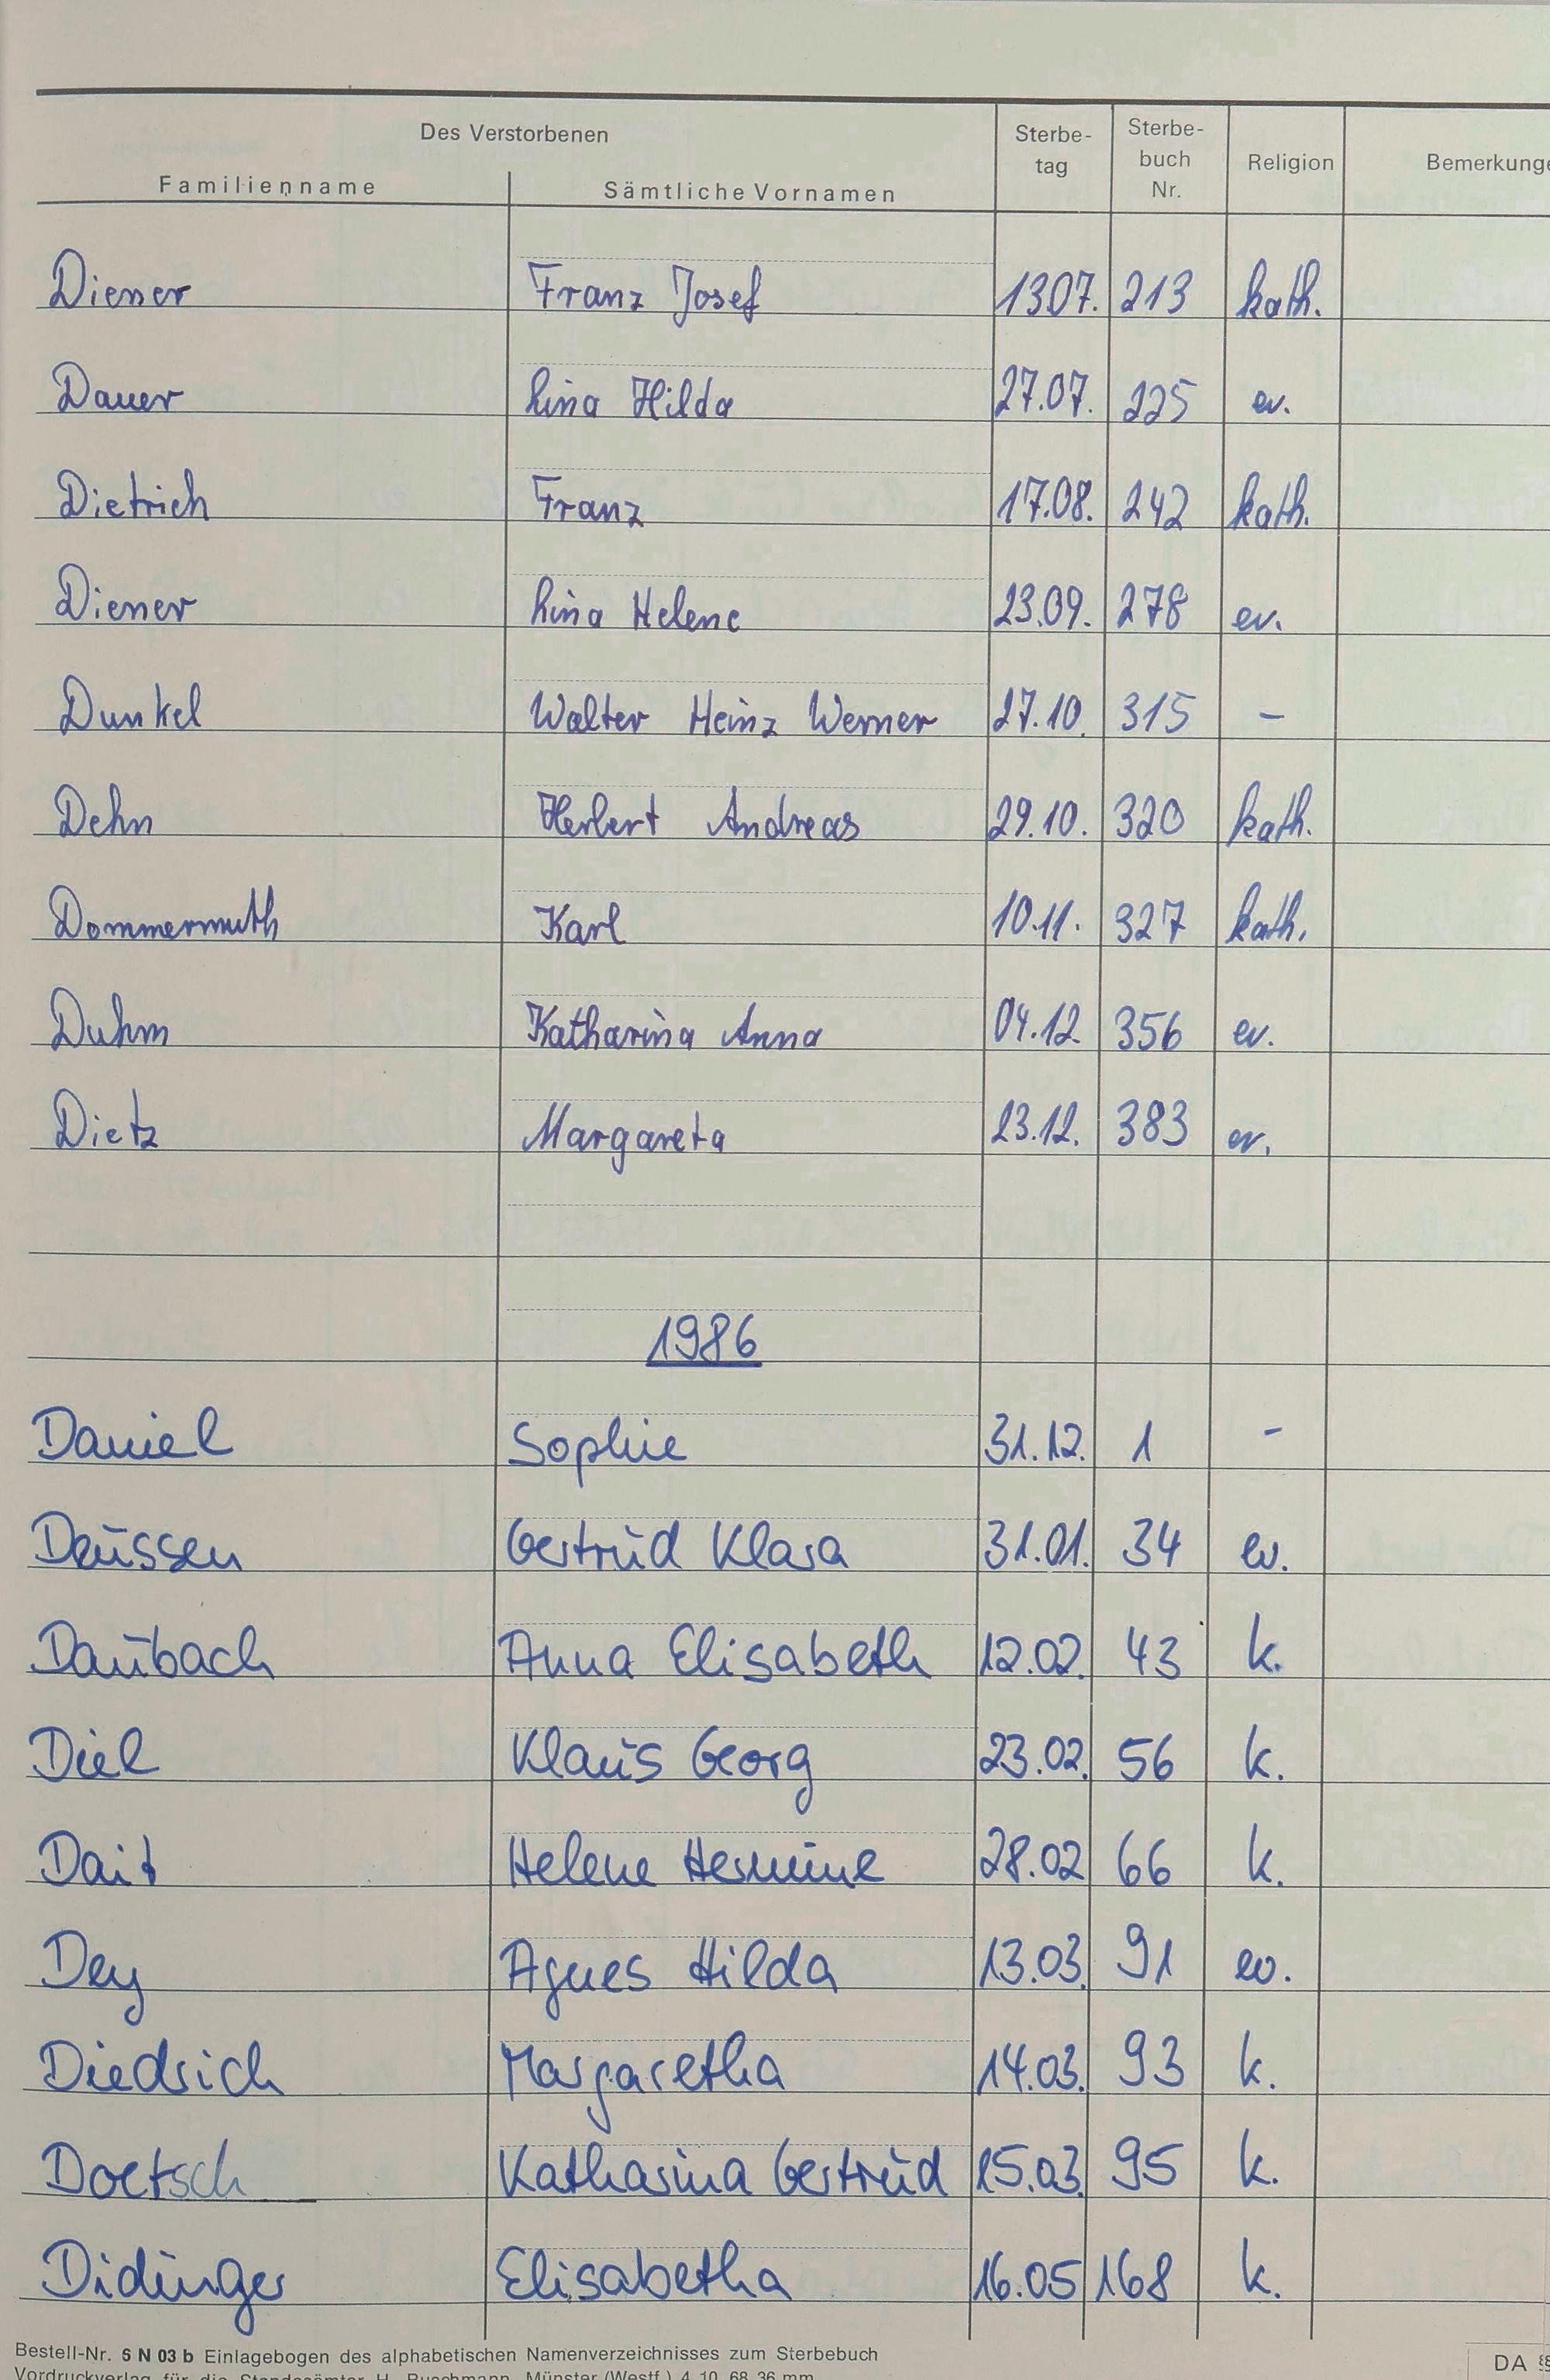 Des Verstorbenen
Familienname Sämtliche Vornamen Sterbe-tag Sterbe-buch Nr. Religion Bemerkunge
Diener Franz Josef 1307. 213 kath.
Dauer Lina Hilda 27.07. 225 ev.
Dietrich Franz 17.08. 242 kath.
Diener Lina Helene 23.09. 278 ev.
Dunkel Walter Heinz Werner 27.10. 315 –
Dehn Herbert Andreas 29.10. 320 kath.
Dommermuth Karl 10.11. 327 kath.
Duhm Katharina Anna 04.12. 356 ev.
Dietz Margareta 23.12. 383 ev.
1986
Daniel Sophie 31.12. 1 –
Deussen Gertrud Klara 31.01. 34 ev.
Daubach Anna Elisabeth 12.02. 43 k.
Diel Klaus Georg 23.02. 56 k.
Dait Helene Hermine 28.02 66 k.
Dey Agnes Hilda 13.03. 91 ev.
Diedrich Margaretha 14.03. 93 k.
Doetsch Katharina Gertrud 15.03. 95 k.
Didinger Elisabetha 16.05 168 k.
Bestell-Nr. 6 N 03 b Einlagebogen des alphabetischen Namenverzeichnisses zum Sterbebuch
Vordruckverlag für die Standesämter H. Buschmann, Münster (Westf.) 4 10 68 36 mm
DA